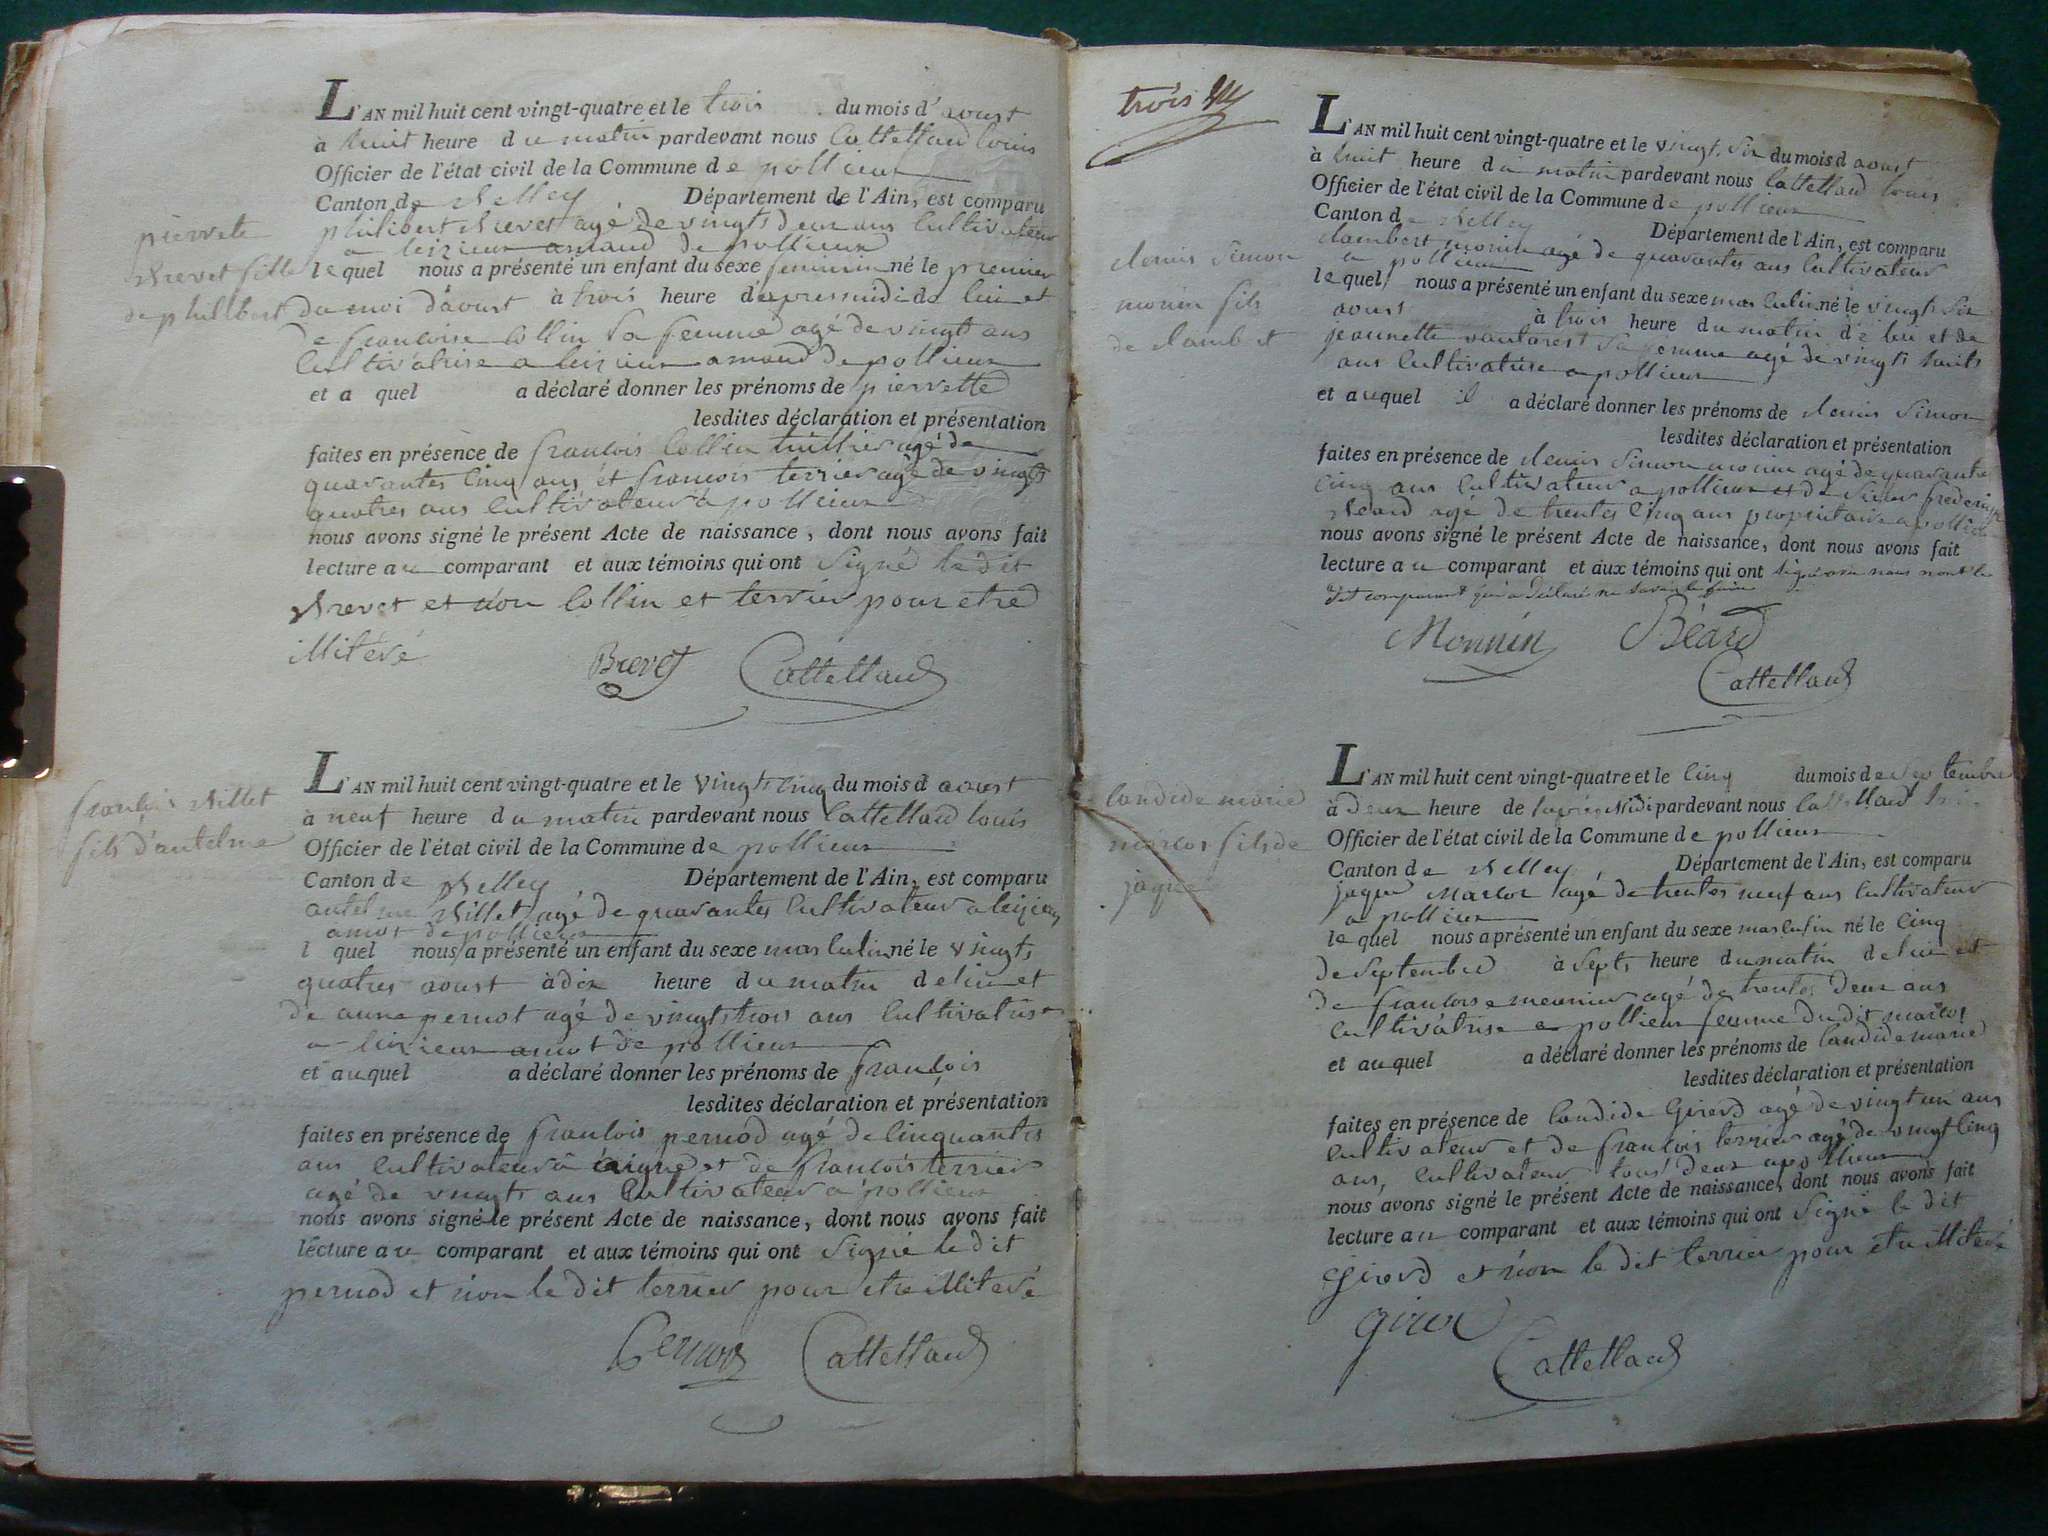 L'AN mil huit cent vingt-quatre et le trois du mois d'aoust
à huit heure du matin pardevant nous Cattelland louis
Officier de l'état civil de la Commune de pollieux
Canton de Belley Département de l'Ain, est comparu
philibert Brevet agé de vingts deux ans Cultivateur
a leizieux amaud de pollieux
le quel nous a présenté un enfant du sexe feminin né le premier
du moi d'aoust à trois heure d'apresmidi de lui et
de francoise Collin Sa femme agé de vingt ans
Cultivatrise a leizieux amaud de pollieux
et a quel a déclaré donner les prénoms de pierrette
lesdites déclaration et présentation
faites en présence de francois Collin tuillier agé de
quarantes Cinq ans et francois terrier agé de vingts
quatres ans Cultivateur a pollieux
nous avons signé le présent Acte de naissance, dont nous avons fait
lecture au comparant et aux témoins qui ont Signé le dit
Brevet et non Collin et terrier pour etre
illitéré
Brevet Cattelland
pierrete
Brevet fille
de philibert
L'AN mil huit cent vingt-quatre et le vingts cinq du mois d aoust
à neuf heure du matin pardevant nous Cattelland louis
Officier de l'état civil de la Commune de pollieux
Canton de Belley Département de l'Ain, est comparu
antelme Billet agé de quarantes Cultivateur a leizieux
amot de pollieux
l quel nous a présenté un enfant du sexe masculin né le vingts
quatres aoust à dix heure du matin de lui et
de anne pernot agé de vingts trois ans Cultivatrise
a leizieux amot de pollieux
et auquel a déclaré donner les prénoms de francois
lesdites déclaration et présentation
faites en présence de francois pernod agé de Cinquantes
ans Cultivateur à et de francois terrier
agé de vingts ans Cultivateur a pollieux
nous avons signé le présent Acte de naissance, dont nous avons fait
lecture au comparant et aux témoins qui ont Signé le dit
pernod et non le dit terrier pour etre illitéré
Pernod Cattelland
francois Billet
fils d'antelme
trois
L'AN mil huit cent vingt-quatre et le vingt Six du mois d aoust
à huit heure du matin pardevant nous Cattelland louis
Officier de l'état civil de la Commune de pollieux
Canton de Belley Département de l'Ain, est comparu
lambert monin agé de quarantes ans Cultivateur
a pollieux
le quel nous a présenté un enfant du sexe masculin né le vingts Six
aoust à trois heure du matin de lui et de
jeannette Sa femme agé de vingts huits
ans Cultivatrise a pollieux
et auquel il a déclaré donner les prénoms de denis Simon
lesdites déclaration et présentation
faites en présence de denis Simon monin agé de quarante
cinq ans Cultivateur a pollieux et de Sieur frederique
Beard agé de trentes Cinq ans propriétaire a pollieux
nous avons signé le présent Acte de naissance, dont nous avons fait
lecture au comparant et aux témoins qui ont signé avec nous non le
dit comparant qui a déclaré ne savoir le faire
Monnin Béard
Cattelland
denis Simon
monin fils
de lambert
L'AN mil huit cent vingt-quatre et le Cinq du mois de Septembre
à deux heure de l'après midi pardevant nous Cattelland
Officier de l'état civil de la Commune de pollieux
Canton de Belley Département de l'Ain, est comparu
jaque Marcot agé de trentes neuf ans Cultivateur
a pollieux
le quel nous a présenté un enfant du sexe masculin né le Cinq
de Septembre à Septs heure du matin de lui et
de francoise meunier agé de trentes deux ans
Cultivatrise a pollieux femme du dit marcot
et auquel a déclaré donner les prénoms de Candide marie
lesdites déclaration et présentation
faites en présence de Candide Girerd agé de vingt un ans
Cultivateur et de francois terrier agé de vingt Cinq
ans, Cultivateur tous deux a pollieux
nous avons signé le présent Acte de naissance, dont nous avons fait
lecture au comparant et aux témoins qui ont Signé le dit
Girerd et non le dit terrier pour etre illitéré
Cattelland
Candide marie
marcot fils de
jaque